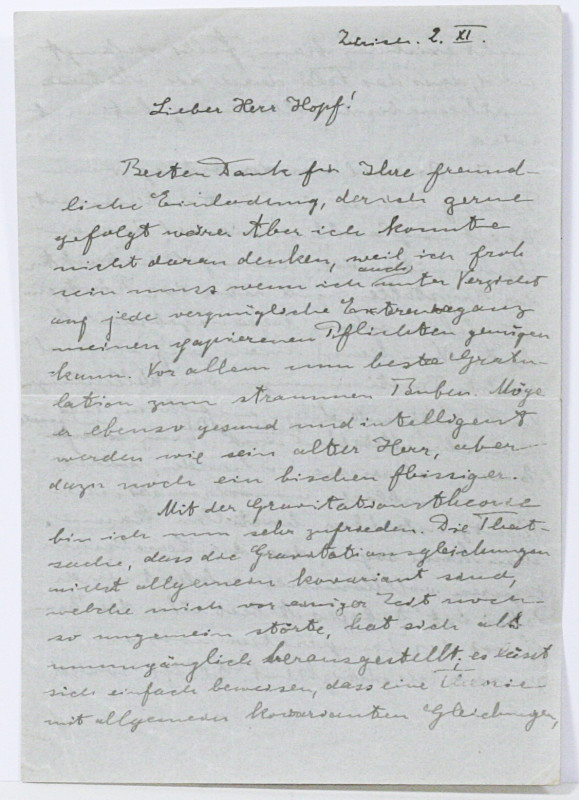 Zürich. 2. XI.
Lieber Herr Hopf!
Besten Dank für Ihre freund-
liche Einladung, der ich gerne
gefolgt wäre. Aber ich konnte
nicht daran denken, weil ich froh
sein muss wenn ich auch unter Verzicht
auf jede vergnügliche Extravaganz
meinen papierenen Pflichten genügen
kann. Vor allem nun beste Gratu-
lation zum strammen Buben. Möge
er ebenso gesund und intelligent
werden wie sein alter Herr, aber
dazu noch ein bischen fleissiger.
Mit der Gravitationstheorie
bin ich nun sehr zufrieden. Die That-
sache, dass die Gravitationsgleichungen
nicht allgemein kovariant sind,
welche mich vor einiger Zeit noch
so ungemein störte, hat sich als
unumgänglich herausgestellt; es lässt
sich einfach beweisen, dass eine Theorie
mit allgemein kovarianten Gleichungen,